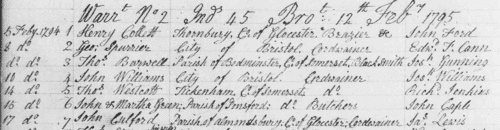 Warrt. No 2 Ind 45 Brot. 12th Feby 1795
5 Feby. 1794 1 Henry Collett Thornbury, Co. of Glocester Brazier &c John Ford
8 do. 2 Geo: Spurrier City of Bristol Cordwainer Edwd. T. Cann
do do. 3 Thos. Bagwell Parish of Bedminster, C. of Somerset, Black Smith Jos: Gunning
10 do. 4 John Williams City of Bristol Cordwainer Jos: Williams
14 do 5 Thos. Westcott Tickenham, C. of Somerset do. Richd. Jenkins
15 do 6 John & Martha Green; Parish of do. Butchers John Caple
17 do. 7 John Parish of Almondsbury, C. of Glocester: Cordwainer Jas: Lewis